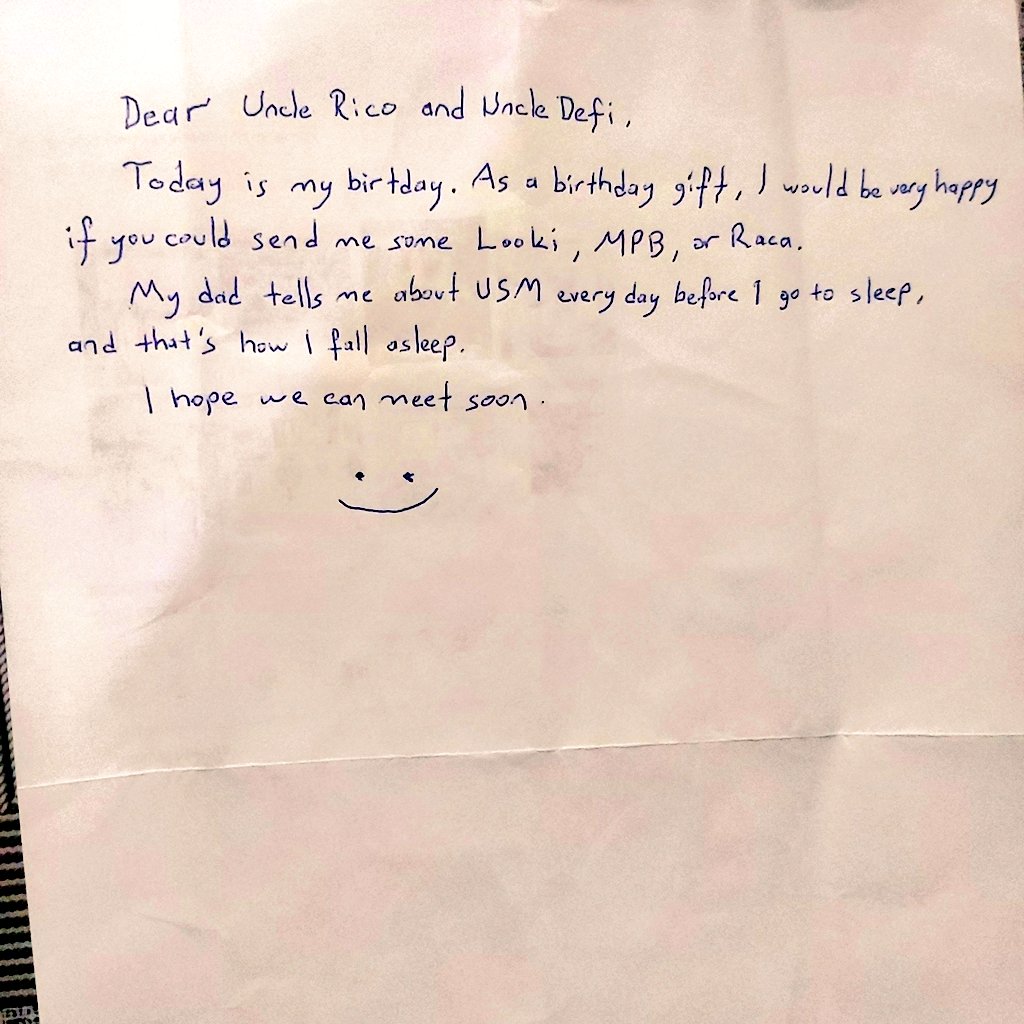 Dear Uncle Rico and Uncle Defi,
Today is my birtday. As a birthday gift, I would be very happy
if you could send me some Looki, MPB, or Raca.
My dad tells me about USM every day before I go to sleep,
and that's how i fall asleep.
I hope we can meet soon.